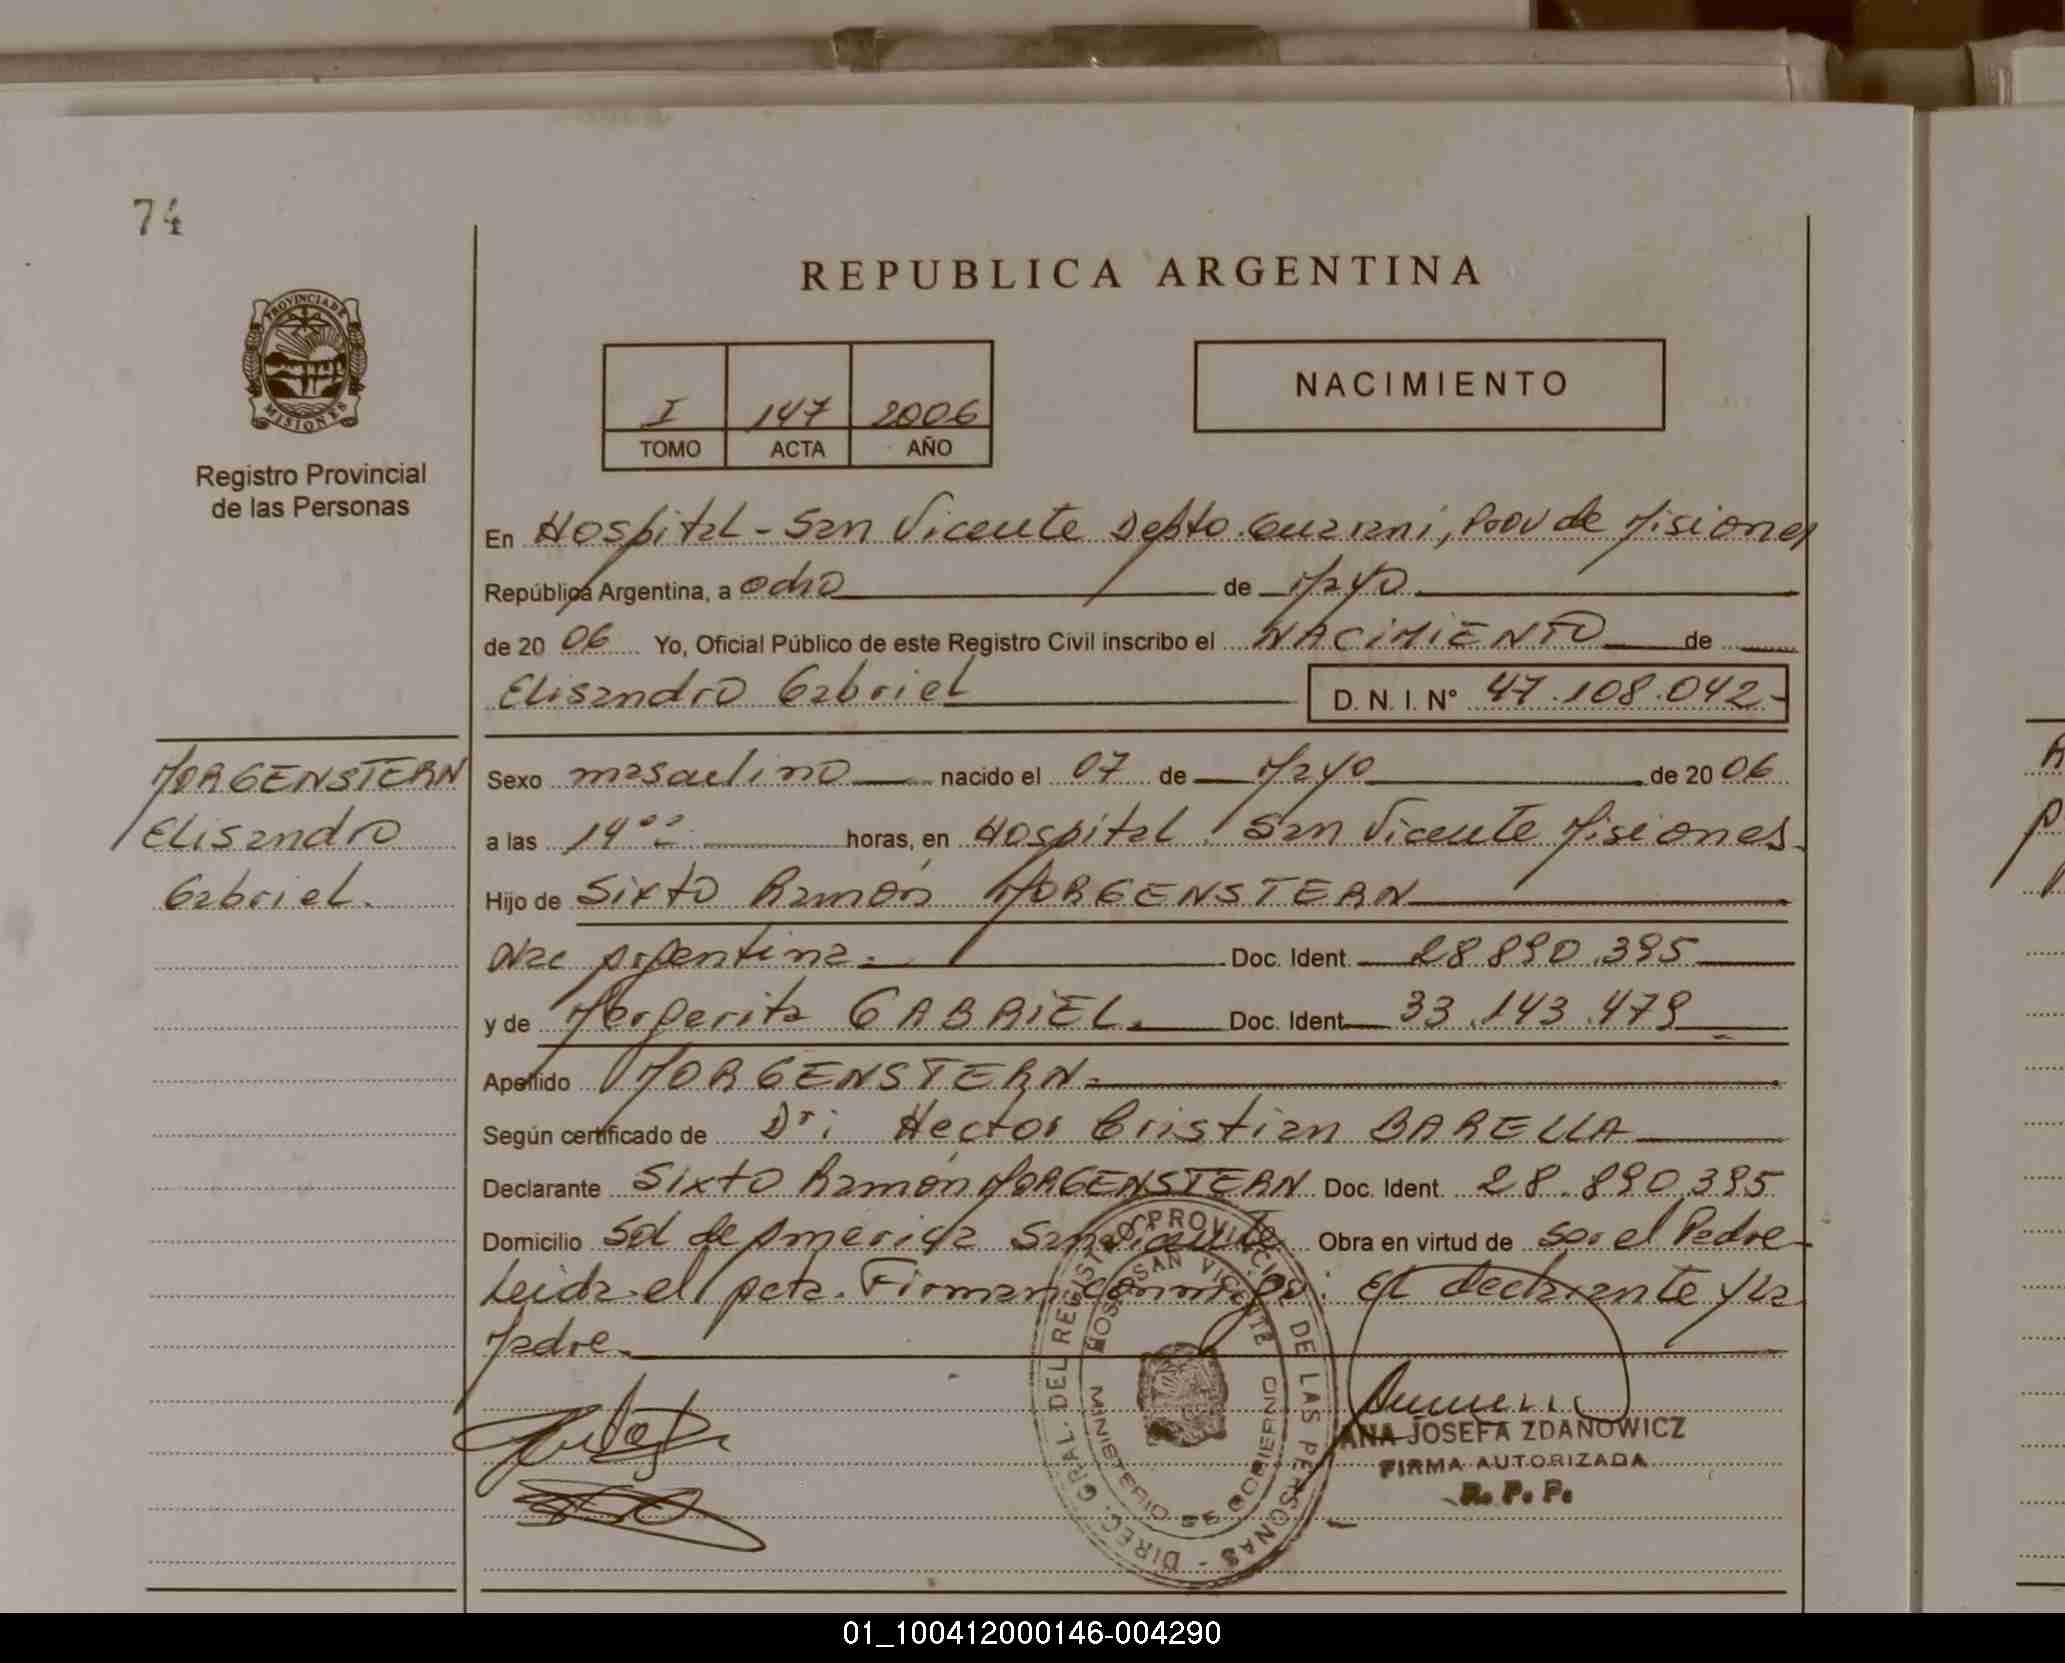 74
REPUBLICA ARGENTINA
PROVINCIA DE
MISIONES
Registro Provincial
de las Personas
I 147 2006
TOMO ACTA AÑO
NACIMIENTO
En Hospital - San Vicente Depto. Guarani, Prov de Misiones
República Argentina, a ocho de Mayo
de 20 06 Yo, Oficial Público de este Registro Civil inscribo el NACIMIENTO de
Elisandro Gabriel D. N. I. N° 47.108.042-
MORGENSTERN
Elisandro
Gabriel.
Sexo masculino nacido el 07 de Mayo de 20 06
a las 14 00 horas, en Hospital San Vicente Misiones.
Hijo de Sixto Ramón MORGENSTERN
Nac Argentina. Doc. Ident. 28.890.395
y de Margarita GABRIEL. Doc. Ident. 33.143.479
Apellido MORGENSTERN.
Según certificado de Dr: Hector Cristian BARELLA
Declarante Sixto Ramón MORGENSTERN Doc. Ident. 28.890.395
Domicilio Sol de America San Vicente Obra en virtud de ser el Padre
Leida el Acta. Firman conmigo: El declarante y la
Madre.
DIREC. GRAL. DEL REGISTRO PROVINCIAL DE LAS PERSONAS -
HOSP. SAN VICENTE
MINISTERIO DE GOBIERNO
ANA JOSEFA ZDANOWICZ
FIRMA AUTORIZADA
R. P. P.
01_100412000146-004290